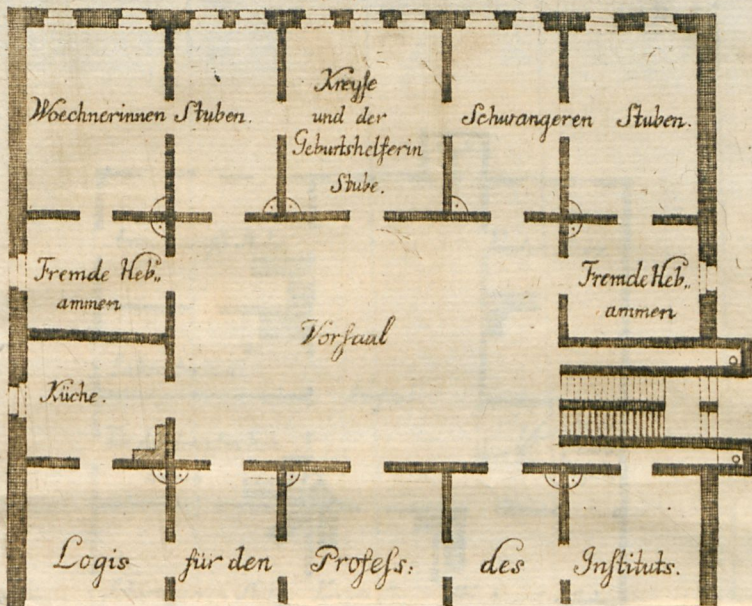 Woechnerinnen Stuben.
Kreyse
und der
Geburtshelferin
Stube.
Schwangeren Stuben.
Fremde Heb„
ammen
Fremde Heb„
ammen
Vorsaal
Küche.
Logis für den Profess: des Instituts.